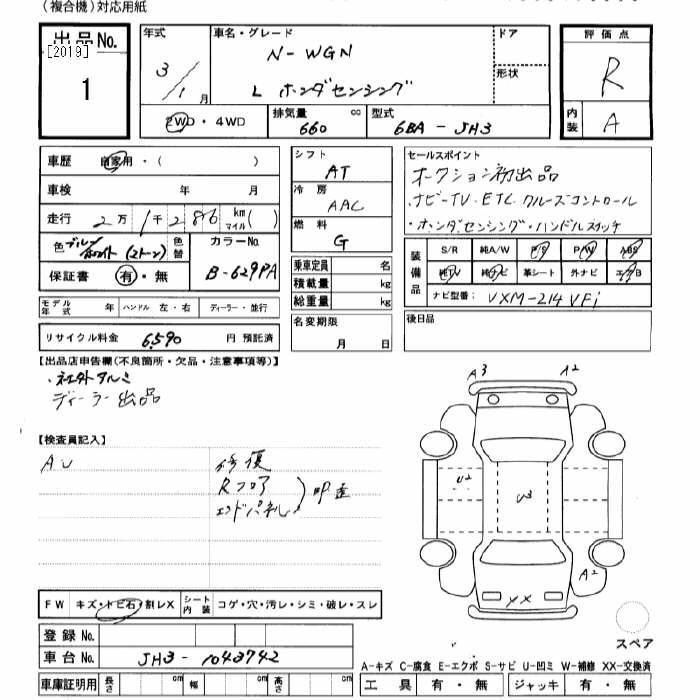 (複合機)対応用紙
出品No.
[2019]
1
年式
3/1月
車名・グレード
N-WGN
L ホンダセンシング
ドア
形状
評価点
R
内装
A
2WD・4WD
排気量
660 cc
型式
6BA-JH3
車歴 自家用・( )
車検 年 月
走行 2万1千286 km マイル( )
色 ブルー/ホワイト(2トーン) 色替
カラーNo.
B-629PA
保証書 有・無
シフト
AT
冷房
AAC
燃料
G
セールスポイント
オークション初出品
・ナビ-TV・ETC・クルーズコントロール
・ホンダセンシング・ハンドルスイッチ
装備品
S/R 純A/W P/S P/W ABS
純TV 純ナビ 革シート 外ナビ エアB
ナビ型番: VXM-214VFi
乗車定員 名
積載量 kg
総重量 kg
モデル年式 年 ハンドル 左・右 ディーラー・並行
リサイクル料金 6,590 円 預託済
名変期限
月 日
後日品
【出品店申告欄(不良箇所・欠品・注意事項等)】
・社外アルミ
ディーラー出品
【検査員記入】
AU
修復
Rフロア
エンドパネル
)凹歪
A3
A2
U2
U3
A2
XX
FW キズ・トビ石・割レX
シート内装 コゲ・穴・汚レ・シミ・破レ・スレ
登録No.
車台No. JH3-1043742
車庫証明用 長さ cm 幅 cm 高さ cm
スペア
A-キズ C-腐食 E-エクボ S-サビ U-凹ミ W-補修 XX-交換済
工具 有・無 ジャッキ 有・無